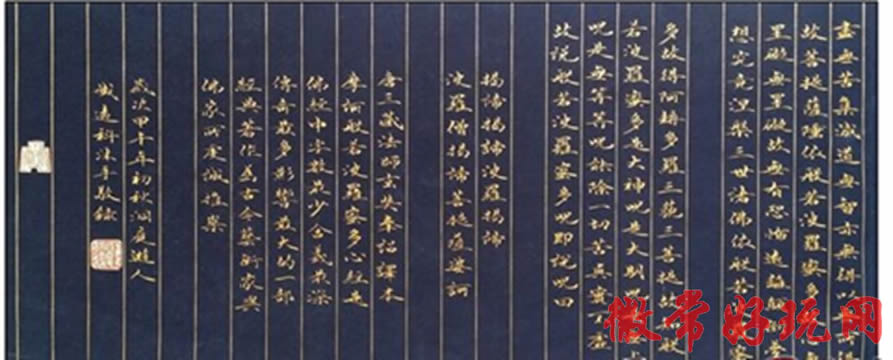 盡無苦集滅道無智亦無得以無
故菩提薩埵依般若波羅蜜多
罣礙無罣礙故無有恐怖遠離顛倒夢
想究竟涅槃三世諸佛依般若波羅
多故得阿耨多羅三藐三菩提故知般
若波羅蜜多是大神咒是大明咒
咒是無等等咒能除一切苦真實不虛
故說般若波羅蜜多咒即說咒曰
揭諦揭諦波羅揭諦
波羅僧揭諦菩提薩婆訶
唐三藏法師玄奘奉詔譯本
摩訶般若波羅蜜多心經是
佛經中字數最少含義最深
傳奇最多影響最大的一部
經典著作為古今藝術家與
佛家所虔誠推崇
歲次甲午年初秋洞庭遊人
敬錄
微常好玩网